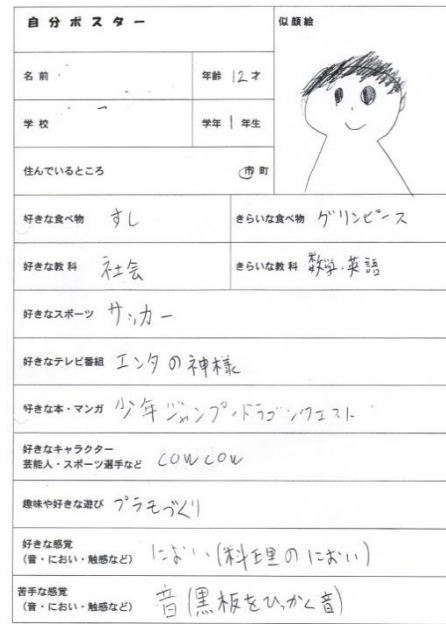 自分ポスター
似顔絵
名前
年齢 12才
学校
学年 1 年生
住んでいるところ
市町
好きな食べ物 すし
きらいな食べ物 グリンピース
好きな教科 社会
きらいな教科 数学・英語
好きなスポーツ サッカー
好きなテレビ番組 エンタの神様
好きな本・マンガ 少年ジャンプ・ドラゴンクエスト
好きなキャラクター
芸能人・スポーツ選手など cowcow
趣味や好きな遊び プラモづくり
好きな感覚
(音・におい・触感など) におい(料理のにおい)
苦手な感覚
(音・におい・触感など) 音(黒板をひっかく音)